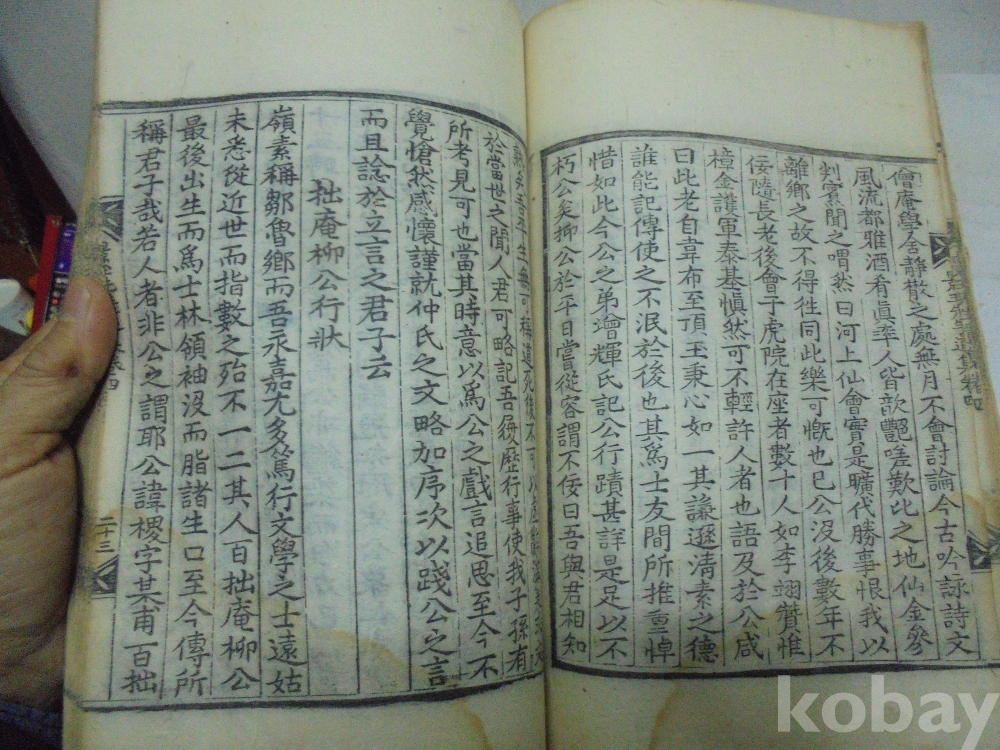 會庵學舍靜散之處無月不會討論今古吟詠詩文
風流都雅酒有眞率人皆歆艶嗟歎比之地仙金參
判 聞之喟然曰河上仙會實是曠代勝事恨我以
離鄕之故不得徃同此樂可慨也已公沒後數年不
佞陵長老後會于虎院在座者數十人如李翊贊惟
樟金護軍泰基愼然可不輕許人者也語及於公咸
曰此老自韋布至頂玉秉心如一其謙遜淸素之德
誰能記傳使之不泯於後也其爲士友間所推重悼
惜如此今公之弟 輝氏記公行蹟甚詳是足以不
朽公矣抑公於平日嘗從容謂不佞曰吾與君相知
吾平生無可稱道死後不可以
於當世之聞人君可略記吾履歷行事使我子孫有
所考見可也當其時意以爲公之戲言追思至今不
覺愴然感懷謹就仲氏之文略加序次以踐公之言
而且諗於立言之君子云
拙庵柳公行狀
嶺素稱鄒魯鄕而吾永嘉尤多篤行文學之士遠姑
未悉從近世而指數之殆不一二其人百拙庵柳公
最後出生而爲士林領袖沒而脂諸生口至今傳所
稱君子哉若人者非公之謂耶公諱櫻字某甫百拙
二十三
kobay